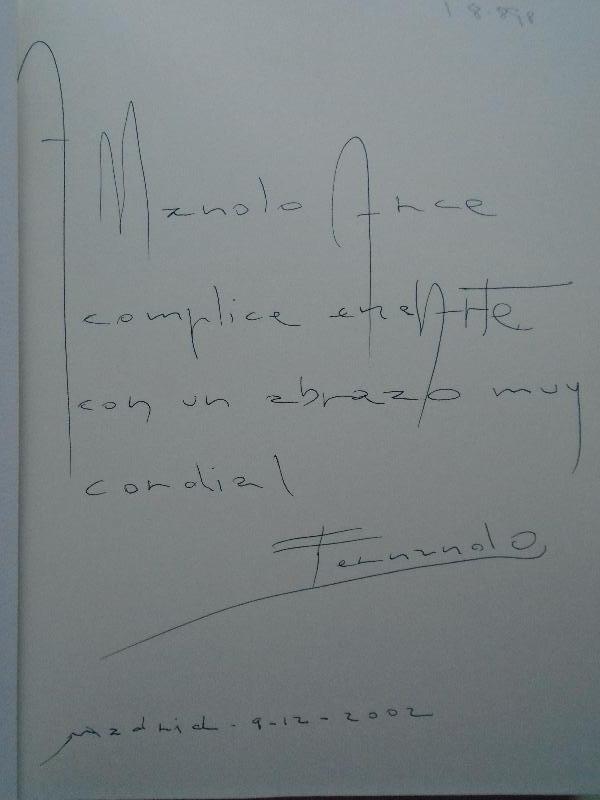 A Manolo Arce
complice en el ARTE
con un abrazo muy
cordial
Fernando
Madrid - 9-12-2002